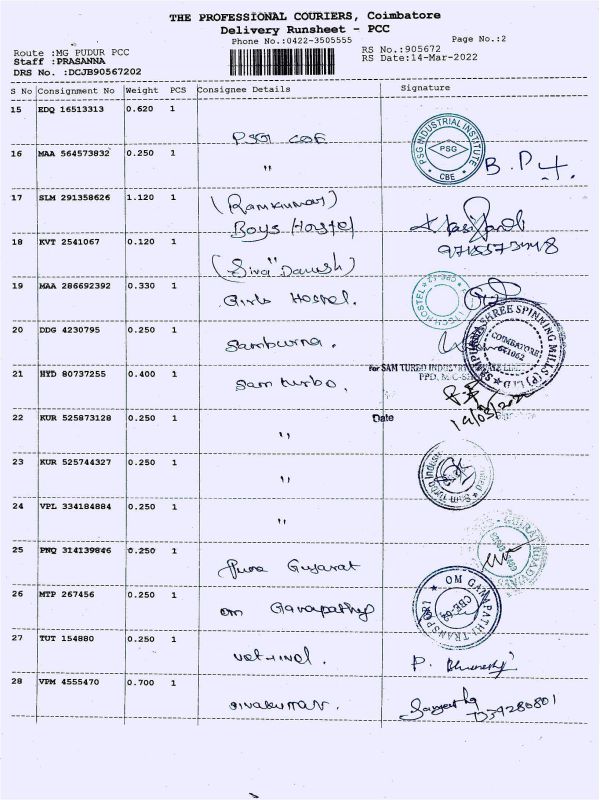 THE PROFESSIONAL COURIERS, Coimbatore
Delivery Runsheet - PCC
Phone No.:0422-3505555 Page No.:2
Route :MG PUDUR PCC RS No.:905672
Staff :PRASANNA RS Date:14-Mar-2022
DRS No. :DCJB90567202
S No Consignment No Weight PCS Consignee Details Signature
15 EDQ 16513313 0.620 1 PSG COE
16 MAA 564573832 0.250 1 " PSG INDUSTRIAL INSTITUTE PSG CBE
17 SLM 291358626 1.120 1 (Ramkumar)
Boys Hostel
18 KVT 2541067 0.120 1 "
(Siva Danush)
19 MAA 286692392 0.330 1 Girls Hostel.
20 DDG 4230795 0.250 1 Samburna. SHREE SPINNING MILLS (P) LTD COIMBATORE 641062
for SAM TURBO
21 HYD 80737255 0.400 1 Sam turbo.
14/03/2022
22 KUR 525873128 0.250 1 " Date
23 KUR 525744327 0.250 1 "
24 VPL 334184884 0.250 1 "
25 PNQ 314139846 0.250 1 Pura Gujarat
26 MTP 267456 0.250 1 om Ganapathy OM GANAPATHI TRANSPORT CBE-62
27 TUT 154880 0.250 1 P.
28 VPM 4555470 0.700 1 sivakumar.